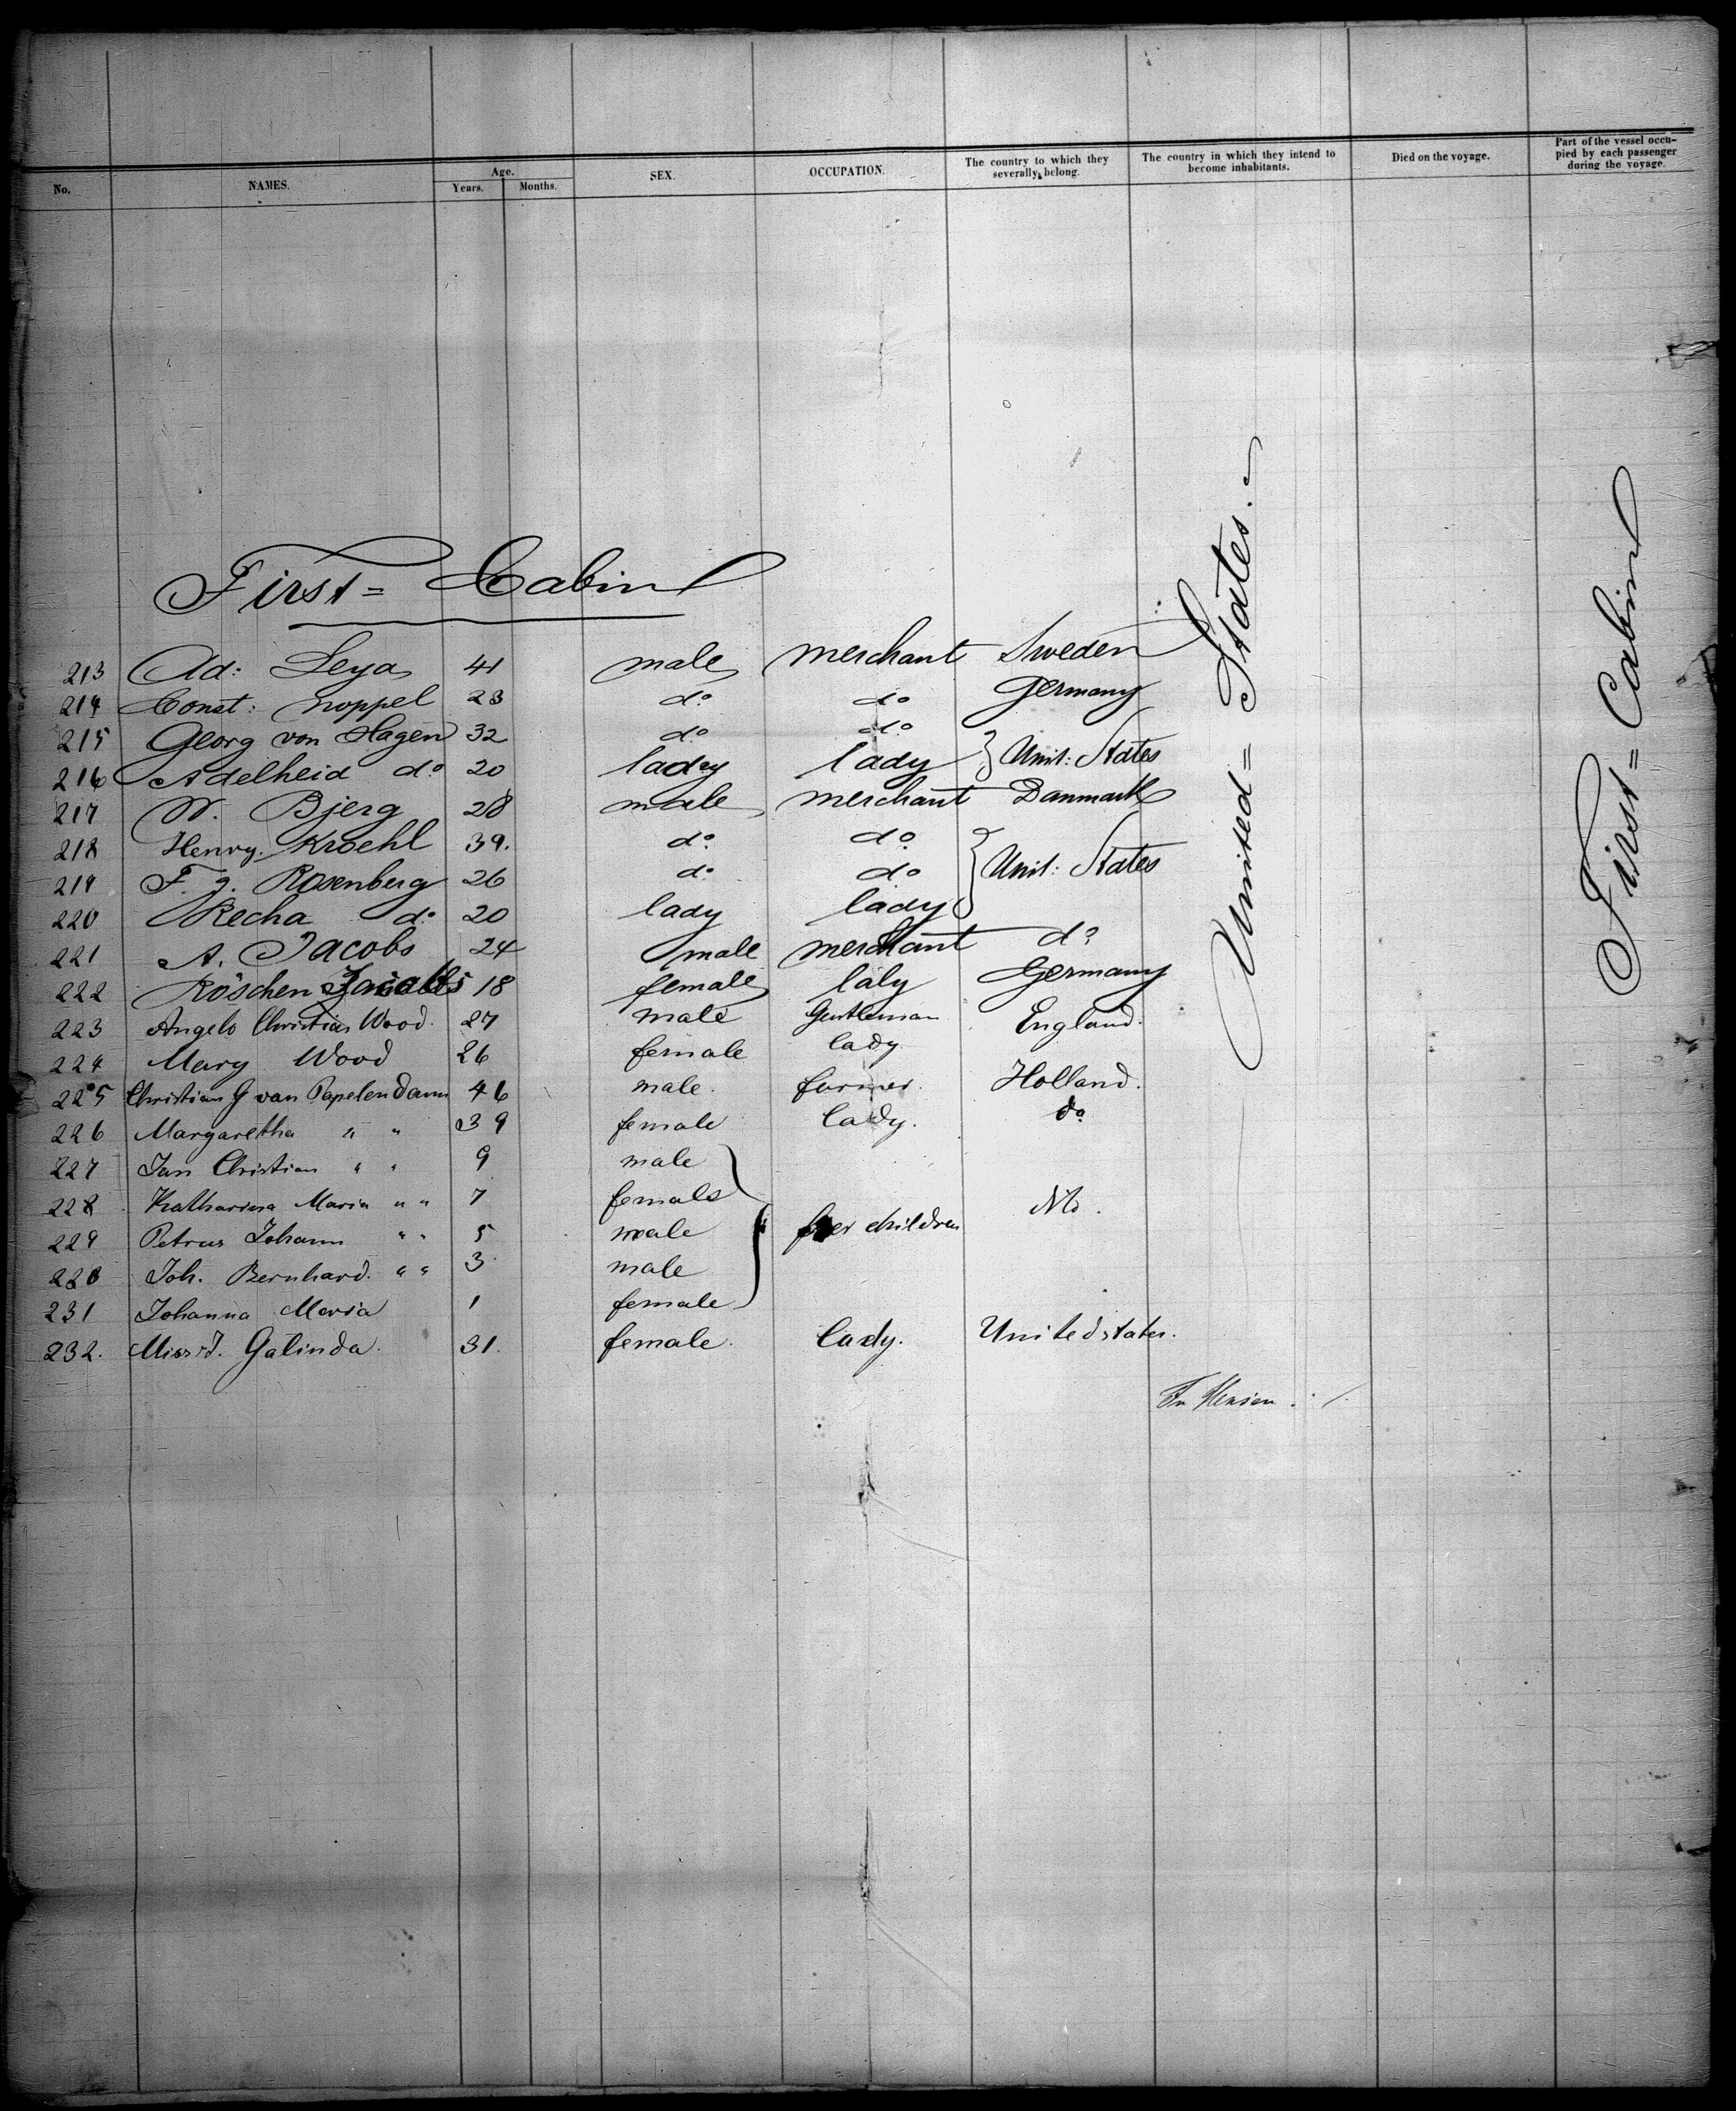 No. NAMES. Age. Years. Months. SEX. OCCUPATION. The country to which they severally belong. The country in which they intend to become inhabitants. Died on the voyage. Part of the vessel occupied by each passenger during the voyage.
First = Cabin
213 Ad: Leya 41 male merchant Sweden
214 Const: Noppel 23 do do Germany
215 Georg von Hagen 32 do do
216 Adelheid do 20 lady lady } Unit: States
217 W. Bjerg 28 male merchant Danmark
218 Henry Kroehl 39. do do
219 F. J. Rosenberg 26 do do } Unit: States
220 Recha do 20 lady lady
221 A. Jacobs 24 male merchant do
222 Röschen Jacobs 18 female laly Germany
223 Angelo Christian Wood. 27 male Gentleman England.
224 Mary Wood 26 female lady.
225 Christian G van Papelendam 46 male. farmer. Holland.
226 Margaretha " " 39 female lady. do
227 Jan Christian " " 9 male
228 Katharina Maria " " 7 female
229 Petrus Johann " " 5 male children
Joh. Bernhard. " " 3 male
231 Johanna Maria 1 female
232. Miss J. Galinda. 31. female. lady. United states.
United = States.
First = Cabin